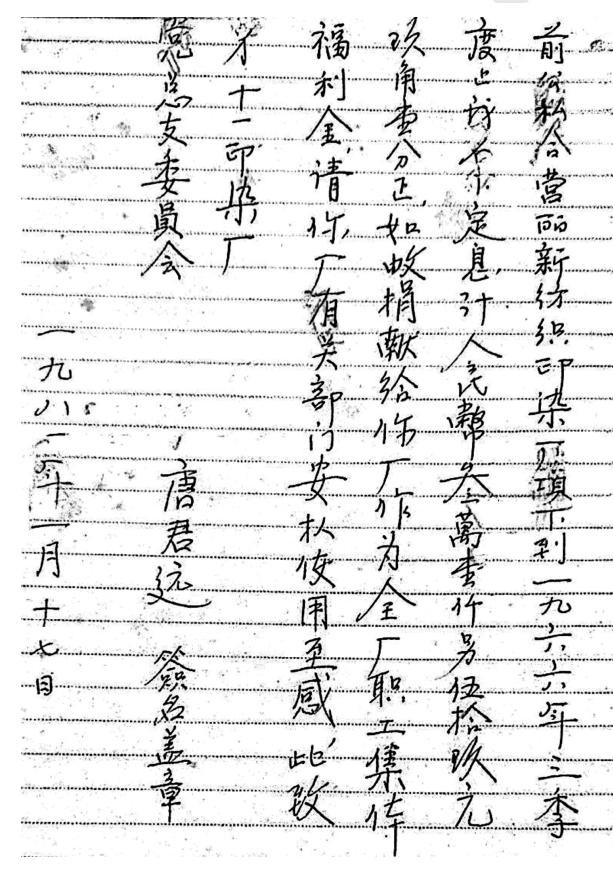 前公私合营丽新纺织印染厂项下到一九六六年三季
度止我名定息,计人民幣叁萬壹仟另伍拾玖元
玖角壹分正,如数捐献给你厂作为全厂职工集体
福利金,请你厂有关部门安机使用至感,此致
才十一印染厂
党总支委員会
唐君远 簽名盖章
一九八二年一月十七日